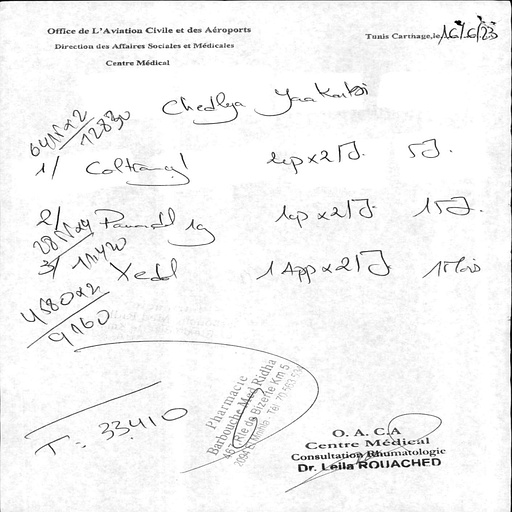 Office de L'Aviation Civile et des Aéroports
Direction des Affaires Sociales et Médicales
Centre Médical
Tunis Carthage, le 16/6/23
Chedlya
12830
1/ 1cp x 2/J. 5J.
2/ 1g 1cp x 2/J. 15J.
11420
3/ 1 App x 2/J. 1 Mois
4580 x 2
9160
T = 33410
Pharmacie
Barbouche Med Ridha
467, Rie de Bizerte Km 5
O. A. C.A
Centre Médical
Consultation Rhumatologie
Dr. Leila ROUACHED